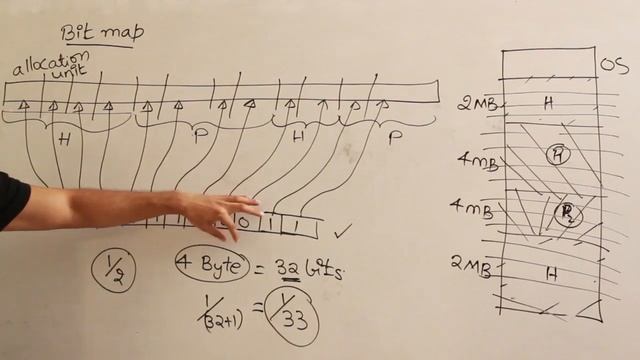 Bit map
allocation
unit
H P H P
1 1 0 1 1
1/2
4 Byte = 32 bits
1/(32+1) = 1/33
OS
2MB H
4MB
4MB P2
2MB H